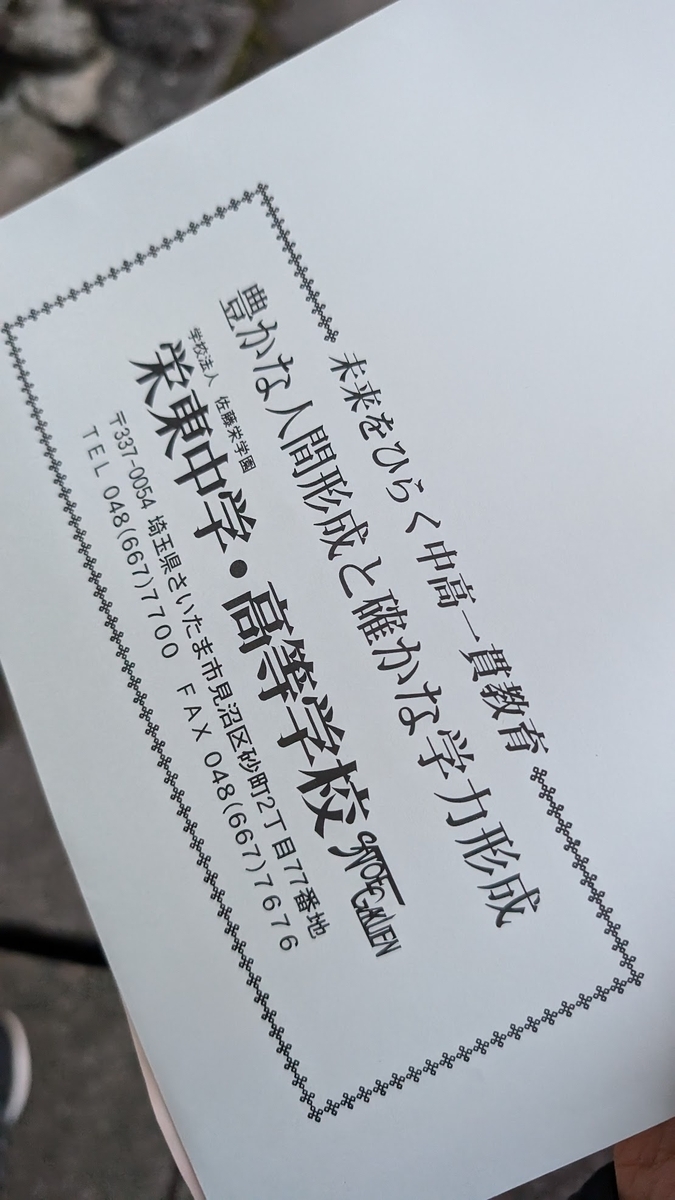 未来をひらく中高一貫教育
豊かな人間形成と確かな学力形成
学校法人 佐藤栄学園
栄東中学・高等学校 SATOE GAKUEN
〒337-0054 埼玉県さいたま市見沼区砂町2丁目77番地
TEL 048(667)7700 FAX 048(667)7676